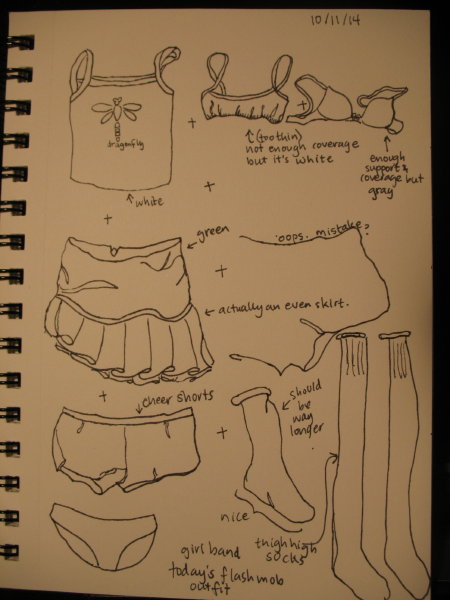 10/11/14
dragonfly
white
(too thin)
not enough coverage
but it's white
enough
support &
coverage but
gray
green
oops. mistake?
actually an even skirt.
cheer shorts
should
be
way
longer
nice
thigh high
socks
girl band
today's flash mob
outfit